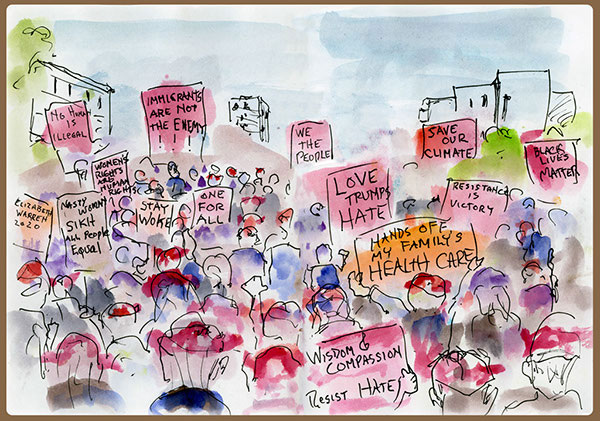 NO HUMAN
IS
ILLEGAL
IMMIGRANTS
ARE NOT
THE ENEMY
WE
THE
PEOPLE
SAVE
OUR
CLIMATE
BLACK
LIVES
MATTER
WOMEN'S
RIGHTS
ARE
HUMAN
RIGHTS
ELIZABETH
WARREN
2020
NASTY WOMEN
SIKH
ALL PEOPLE
EQUAL
STAY
WOKE
ONE
FOR
ALL
LOVE
TRUMPS
HATE
RESISTANCE
IS
VICTORY
HANDS OFF
MY FAMILY'S
HEALTH CARE
WISDOM &
COMPASSION
RESIST HATE